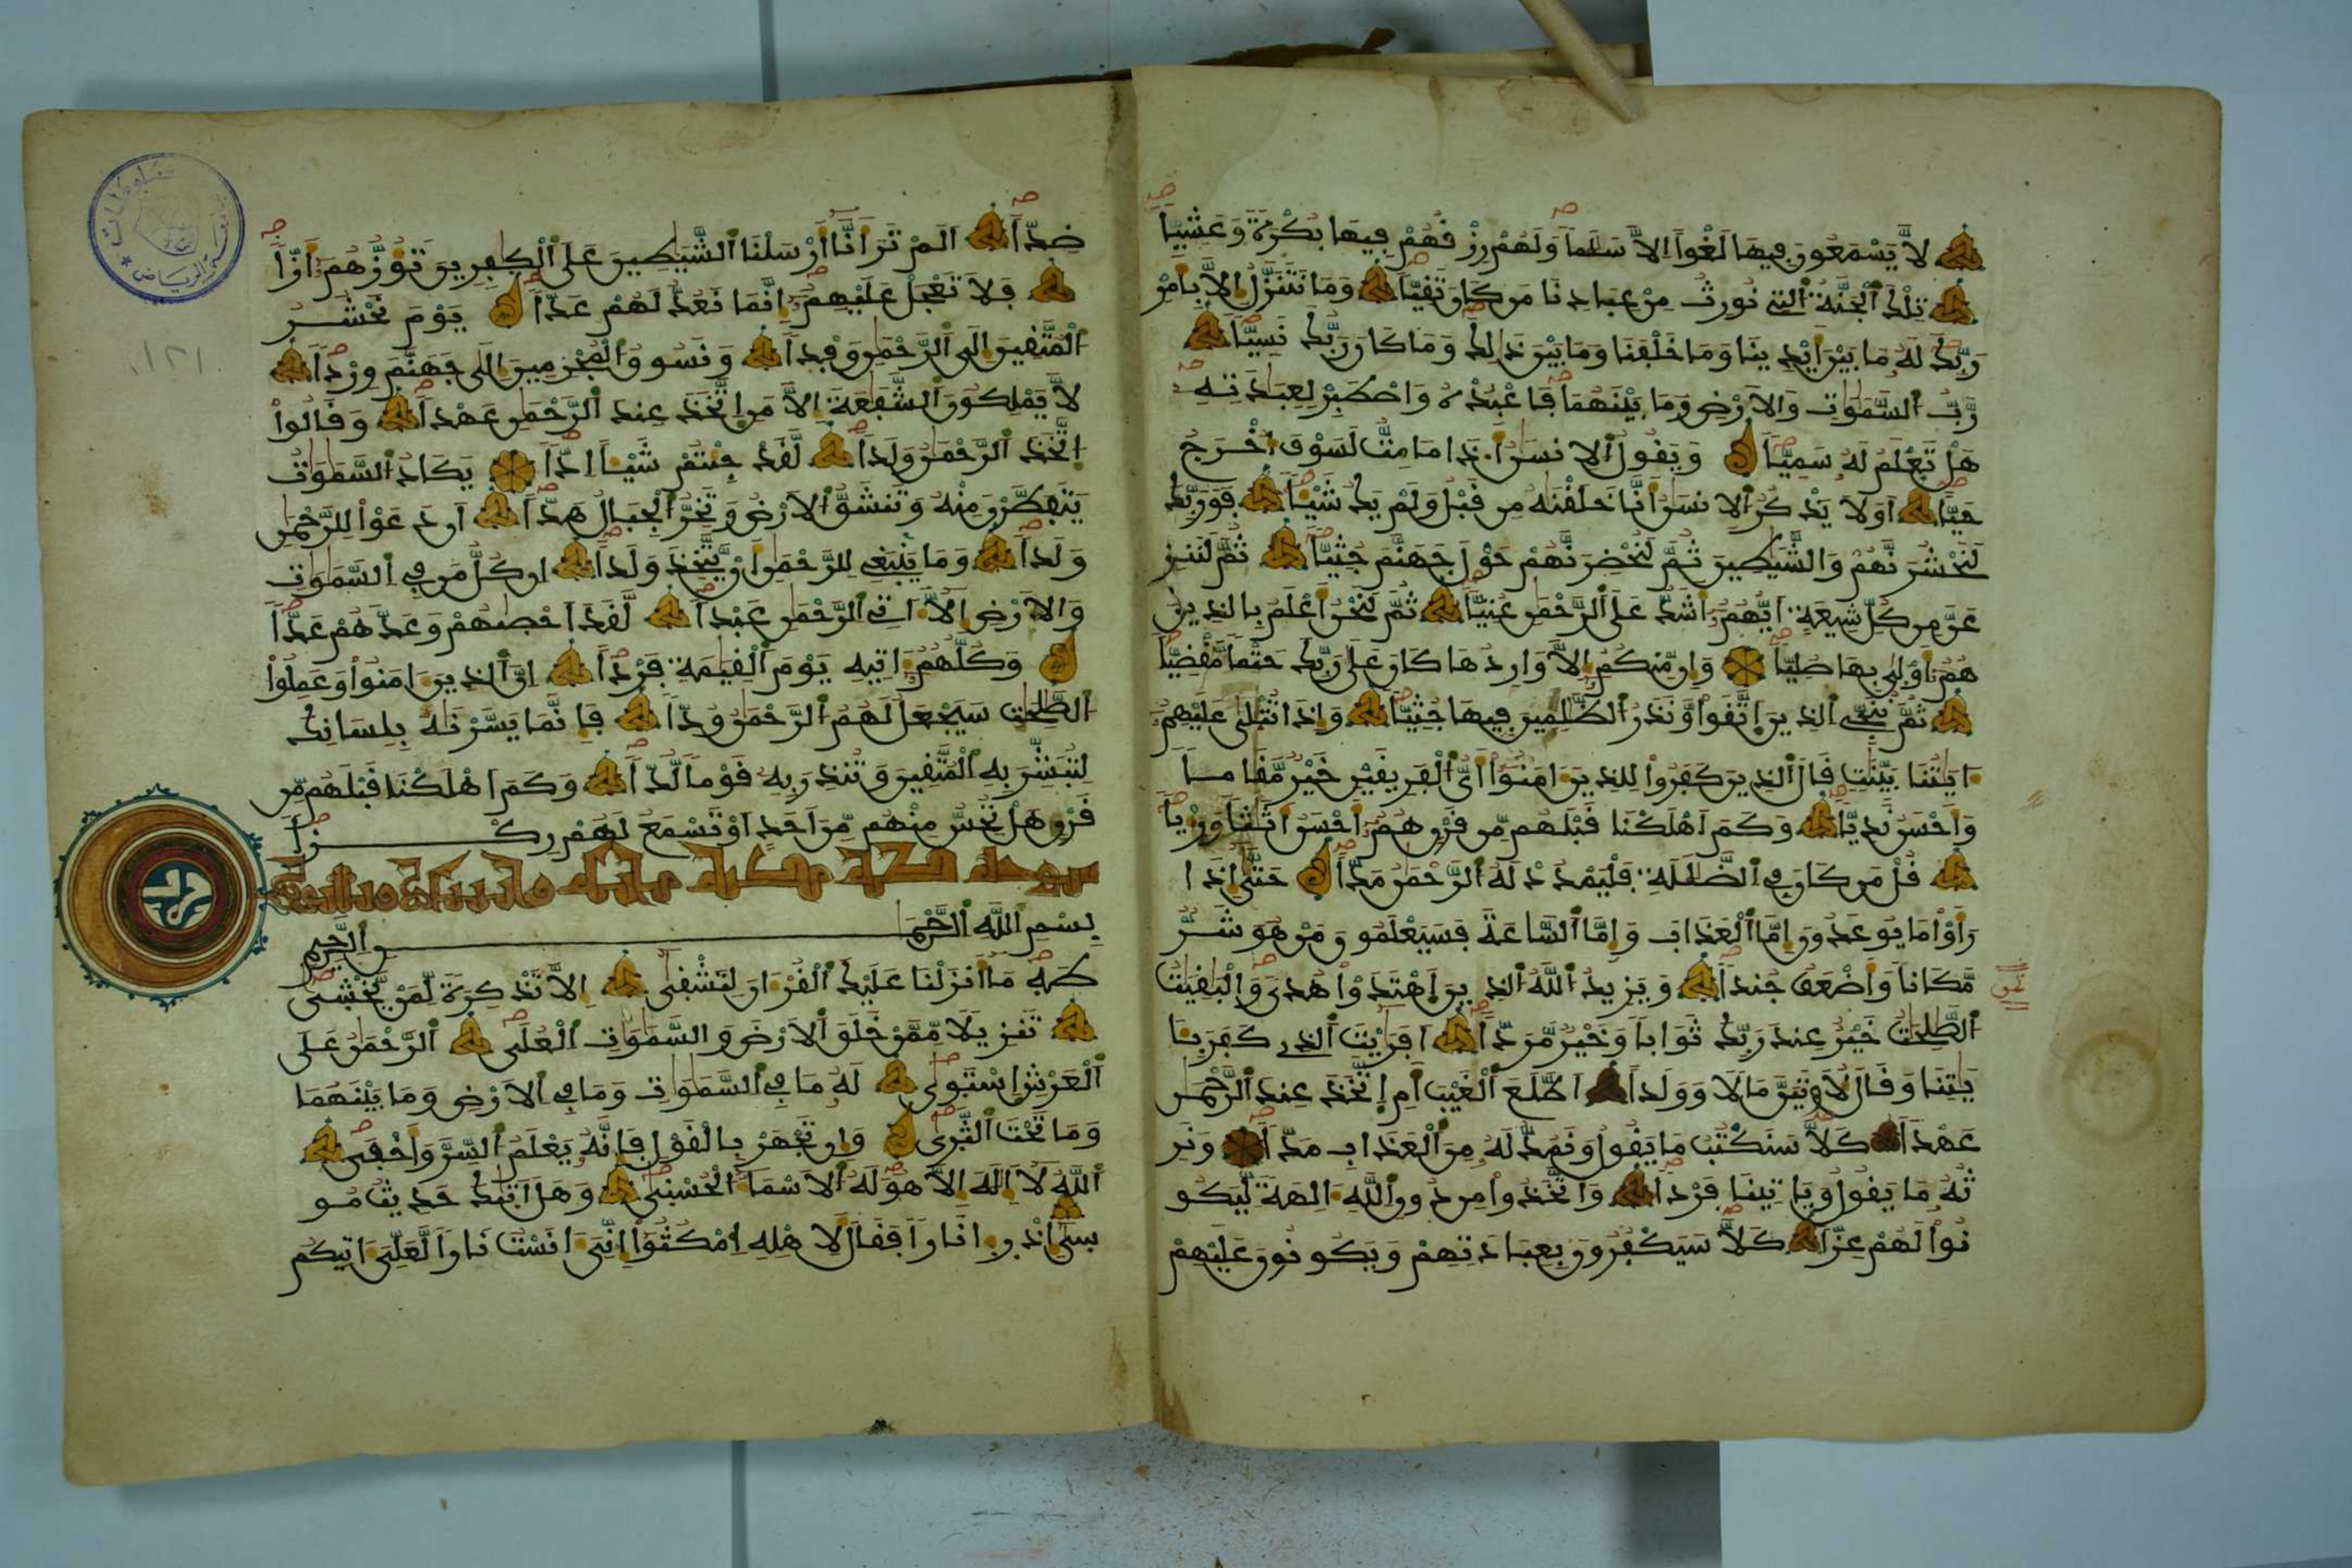 لَّا يَسْمَعُونَ فِيهَا لَغْوًا اِلَّا سَلَٰمًا وَلَهُمْ رِزْقُهُمْ فِيهَا بُكْرَةً وَعَشِيًّا
تِلْكَ ٱلْجَنَّةُ ٱلتِے نُورِثُ مِنْ عِبَادِنَا مَن كَانَ تَقِيًّا وَمَا نَتَنَزَّلُ إِلَّا بِأَمْرِ
رَبِّكَ لَهُۥ مَا بَيْنَ أَيْدِينَا وَمَا خَلْفَنَا وَمَا بَيْنَ ذَٰلِكَ وَمَا كَانَ رَبُّكَ نَسِيًّا
رَّبُّ ٱلسَّمَٰوَٰتِ وَٱلَارْضِ وَمَا بَيْنَهُمَا فَاعْبُدْهُ وَاصْطَبِرْ لِعِبَٰدَتِهِۦ
هَلْ تَعْلَمُ لَهُۥ سَمِيًّا وَيَقُولُ ٱلِانسَٰنُ أَ.ذَا مَا مِتُّ لَسَوْفَ أُخْرَجُ
حَيًّا اَوَلَا يَذْكُرُ ٱلِانسَٰنُ أَنَّا خَلَقْنَٰهُ مِن قَبْلُ وَلَمْ يَكُ شَيْـًٔا فَوَرَبِّكَ
لَنَحْشُرَنَّهُمْ وَالشَّيَٰطِينَ ثُمَّ لَنُحْضِرَنَّهُمْ حَوْلَ جَهَنَّمَ جُثِيًّا ثُمَّ لَنَنزِ
عَنَّ مِن كُلِّ شِيعَةٍ اَيُّهُمُۥٓ أَشَدُّ عَلَى ٱلرَّحْمَٰنِ عُتِيًّا ثُمَّ لَنَحْنُ أَعْلَمُ بِالذِينَ
هُمُۥٓ أَوْلَىٰ بِهَا صُلِيًّا وَإِن مِّنكُمُۥٓ إِلَّا وَارِدُهَا كَانَ عَلَىٰ رَبِّكَ حَتْمًا مَّقْضِيًّا
ثُمَّ نُنَجِّے ٱلذِينَ اَتَّقَوا وَّنَذَرُ ٱلظَّٰلِمِينَ فِيهَا جُثِيًّا وَإِذَا تُتْلَىٰ عَلَيْهِمُۥٓ
ءَايَٰتُنَا بَيِّنَٰتٍ قَالَ ٱلذِينَ كَفَرُوا لِلذِينَ ءَامَنُوٓا أَيُّ ٱلْفَرِيقَيْنِ خَيْرٌ مَّقَامًا
وَأَحْسَنُ نَدِيًّا وَكَمَ اَهْلَكْنَا قَبْلَهُم مِّن قَرْنٍ هُمُۥٓ أَحْسَنُ أَثَٰثًا وَرِءْيًا
قُلْ مَن كَانَ فِے ٱلضَّلَٰلَةِ فَلْيَمْدُدْ لَهُ ٱلرَّحْمَٰنُ مَدًّا حَتَّىٰٓ إِذَا
رَأَوْا مَا يُوعَدُونَ إِمَّا ٱلْعَذَابَ وَإِمَّا ٱلسَّاعَةَ فَسَيَعْلَمُونَ مَنْ هُوَ شَرٌّ
مَّكَانًا وَأَضْعَفُ جُندًا وَيَزِيدُ ٱللَّهُ ٱلذِينَ اَهْتَدَوْا هُدًى وَٱلْبَٰقِيَٰتُ
ثمن
ٱلصَّٰلِحَٰتُ خَيْرٌ عِندَ رَبِّكَ ثَوَابًا وَخَيْرٌ مَّرَدًّا اَفَرَٰيْتَ ٱلذِے كَفَرَ بِـَٔا
يَٰتِنَا وَقَالَ لَأُوتَيَنَّ مَالًا وَوَلَدًا اَطَّلَعَ ٱلْغَيْبَ أَمِ اِتَّخَذَ عِندَ ٱلرَّحْمَٰنِ
عَهْدًا كَلَّا سَنَكْتُبُ مَا يَقُولُ وَنَمُدُّ لَهُۥ مِنَ ٱلْعَذَابِ مَدًّا وَنَرِ
ثُهُۥ مَا يَقُولُ وَيَاتِينَا فَرْدًا وَاتَّخَذُوا مِن دُونِ ٱللَّهِ ءَالِهَةً لِّيَكُو
نُوا لَهُمْ عِزًّا كَلَّا سَيَكْفُرُونَ بِعِبَادَتِهِمْ وَيَكُونُونَ عَلَيْهِمْ
ضِدًّا اَلَمْ تَرَ أَنَّآ أَرْسَلْنَا ٱلشَّيَٰطِينَ عَلَى ٱلْكٰفِرِينَ تَؤُزُّهُمُۥٓ أَزًّا
فَلَا تَعْجَلْ عَلَيْهِمُۥٓ إِنَّمَا نَعُدُّ لَهُمْ عَدًّا يَوْمَ نَحْشُرُ
ٱلْمُتَّقِينَ إِلَى ٱلرَّحْمَٰنِ وَفْدًا وَنَسُوقُ ٱلْمُجْرِمِينَ إِلَىٰ جَهَنَّمَ وِرْدًا
لَّا يَمْلِكُونَ ٱلشَّفَٰعَةَ إِلَّا مَنِ اِتَّخَذَ عِندَ ٱلرَّحْمَٰنِ عَهْدًا وَقَالُوا
اِتَّخَذَ ٱلرَّحْمَٰنُ وَلَدًا لَّقَدْ جِئْتُمْ شَيْـًٔا اِدًّا يَكَادُ ٱلسَّمَٰوَٰتُ
يَتَفَطَّرْنَ مِنْهُ وَتَنشَقُّ ٱلَارْضُ وَتَخِرُّ ٱلْجِبَالُ هَدًّا اَن دَعَوْا لِلرَّحْمَٰنِ
وَلَدًا وَمَا يَنۢبَغِے لِلرَّحْمَٰنِ أَنْ يَّتَّخِذَ وَلَدًا اِن كُلُّ مَن فِے ٱلسَّمَٰوَٰتِ
وَالَارْضِ إِلَّآ ءَاتِے ٱلرَّحْمَٰنِ عَبْدًا لَّقَدَ اَحْصَىٰهُمْ وَعَدَّهُمْ عَدًّا
وَكُلُّهُمُۥٓ ءَاتِيهِ يَوْمَ ٱلْقِيَٰمَةِ فَرْدًا اِنَّ ٱلذِينَ ءَامَنُوا وَعَمِلُوا
ٱلصَّٰلِحَٰتِ سَيَجْعَلُ لَهُمُ ٱلرَّحْمَٰنُ وُدًّا فَإِنَّمَا يَسَّرْنَٰهُ بِلِسَانِكَ
لِتُبَشِّرَ بِهِ ٱلْمُتَّقِينَ وَتُنذِرَ بِهِۦ قَوْمًا لُّدًّا وَكَمَ اَهْلَكْنَا قَبْلَهُم مِّن
قَرْنٍ هَلْ تُحِسُّ مِنْهُم مِّنَ اَحَدٍ اَوْ تَسْمَعُ لَهُمْ رِكْزًا
سورة طه مكية مائة
بِسْمِ ٱللَّهِ ٱلرَّحْمَٰنِ ٱلرَّحِيمِ
طَهَ مَآ أَنزَلْنَا عَلَيْكَ ٱلْقُرْءَانَ لِتَشْقَىٰٓ إِلَّا تَذْكِرَةً لِّمَنْ يَّخْشَىٰ
تَنزِيلًا مِّمَّنْ خَلَقَ ٱلَارْضَ وَالسَّمَٰوَٰتِ ٱلْعُلَى ٱلرَّحْمَٰنُ عَلَى
ٱلْعَرْشِ اِسْتَوَىٰ لَهُۥ مَا فِے ٱلسَّمَٰوَٰتِ وَمَا فِے ٱلَارْضِ وَمَا بَيْنَهُمَا
وَمَا تَحْتَ ٱلثَّرَىٰ وَإِن تَجْهَرْ بِالْقَوْلِ فَإِنَّهُۥ يَعْلَمُ ٱلسِّرَّ وَأَخْفَى
ٱللَّهُ لَآ إِلَٰهَ إِلَّا هُوَ لَهُ ٱلَاسْمَآءُ ٱلْحُسْنَىٰ وَهَلَ اَتَىٰكَ حَدِيثُ مُو
سَىٰٓ إِذْ رَءَا نَارًا فَقَالَ لِأَهْلِهِ اِمْكُثُوٓا إِنِّيَ ءَانَسْتُ نَارًا لَّعَلِّيَ ءَاتِيكُم
١٢١